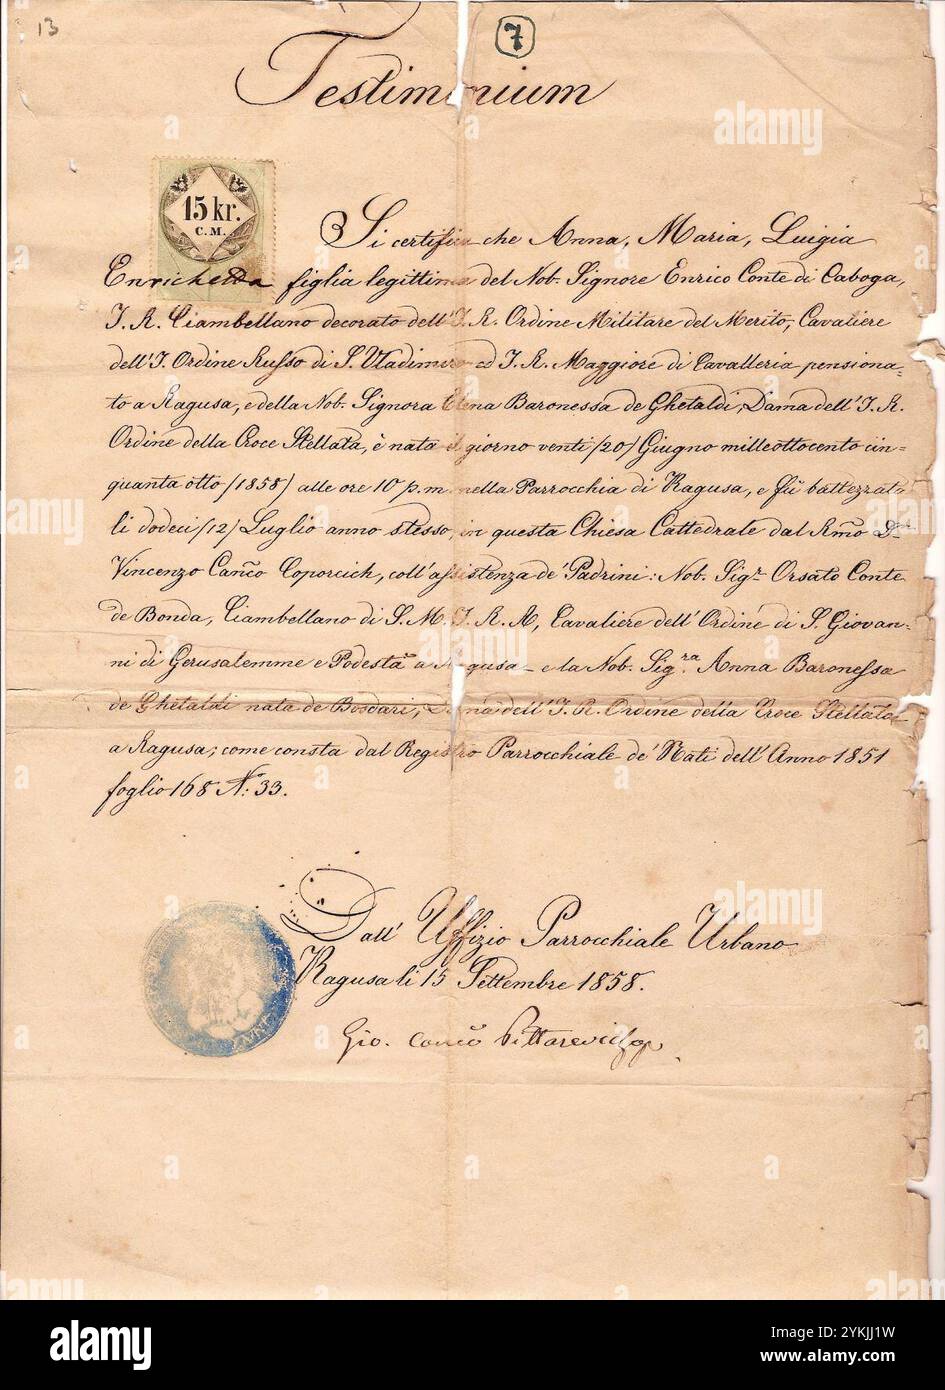 13
7
Testimonium
15 kr.
C.M.
Si certifica che Anna, Maria, Luigia
Enrichetta figlia legittima del Nob. Signore Enrico Conte di Caboga,
I. R. Ciambellano decorato dell'I. R. Ordine Militare del Merito, Cavaliere
dell'I. Ordine Russo di S. Vladimiro ed I. R. Maggiore di Cavalleria pensiona-
to a Ragusa, e della Nob. Signora Elena Baronessa de Ghetaldi, Dama dell'I. R.
Ordine della Croce Stellata, è nata il giorno venti /20/ Giugno milleottocento cin-
quanta otto /1858/ alle ore 10 p.m. nella Parrocchia di Ragusa, e fù battezzata
li dodeci /12/ Luglio anno stesso, in questa Chiesa Cattedrale dal Rmo Dn
Vincenzo Canco Coporcich, coll'assistenza de' Padrini: Nob. Sigr Orsato Conte
de Bonda, Ciambellano di S. M. I. R. A, Cavaliere dell'Ordine di S. Giovan-
ni di Gerusalemme e Podestà a Ragusa - e la Nob. Sigra Anna Baronessa
de Ghetaldi nata de Bosdari, Dama dell'I. R. Ordine della Croce Stellata
a Ragusa; come consta dal Registro Parrocchiale de' Nati dell'Anno 1851
foglio 168 No: 33.
Dall' Uffizio Parrocchiale Urbano
Ragusa li 15 Settembre 1858.
Gio. Canco
alamy
Image ID: 2YKJJ1W
www.alamy.com